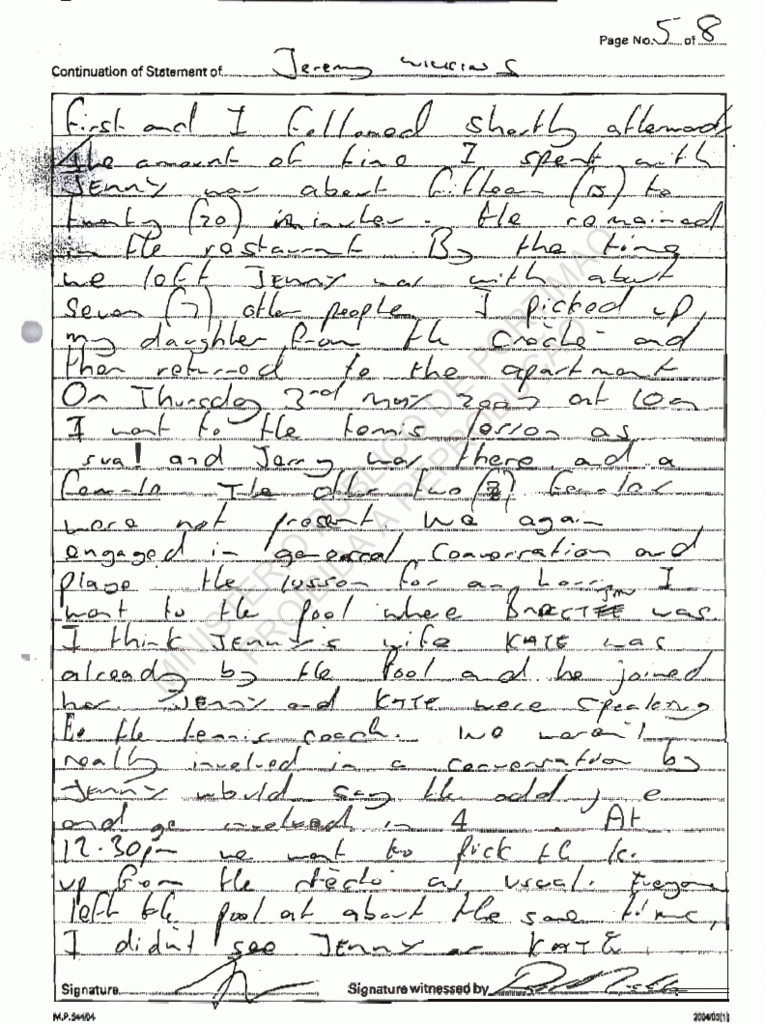 Page No. 5 of 8
Continuation of Statement of Jeremy Wilkins
first and I followed shortly afterwards
The amount of time I spent with
JERRY was about fifteen (15) to
twenty (20) minutes. He remained
in the restaurant. By the time
we left JERRY was with about
seven (7) other people. I picked up
my daughter from the Crèche and
then returned to the apartment
On Thursday 3rd May 2007 at 10am
I went to the tennis lesson as
usual and Jerry was there and a
female The other two (2) females
were not present. We again
engaged in general conversation and
played the lesson for an hour. I
went to the pool where was.
I think JERRY's wife KATE was
already by the Pool and he joined
her. JERRY and KATE were speaking
to the tennis coach. We weren't
really involved in a conversation by
JERRY would say the odd
and involved in 4. At
12.30pm we went to pick the
up from the crèche as usual. Everyone
left the pool at about the same time,
I didn't see JERRY or KATE.
Signature Signature witnessed by
M.P. 344/04 2004/03(1)
MINISTÉRIO PÚBLICO DE PORTIMÃO
PROIBIDA A REPRODUÇÃO